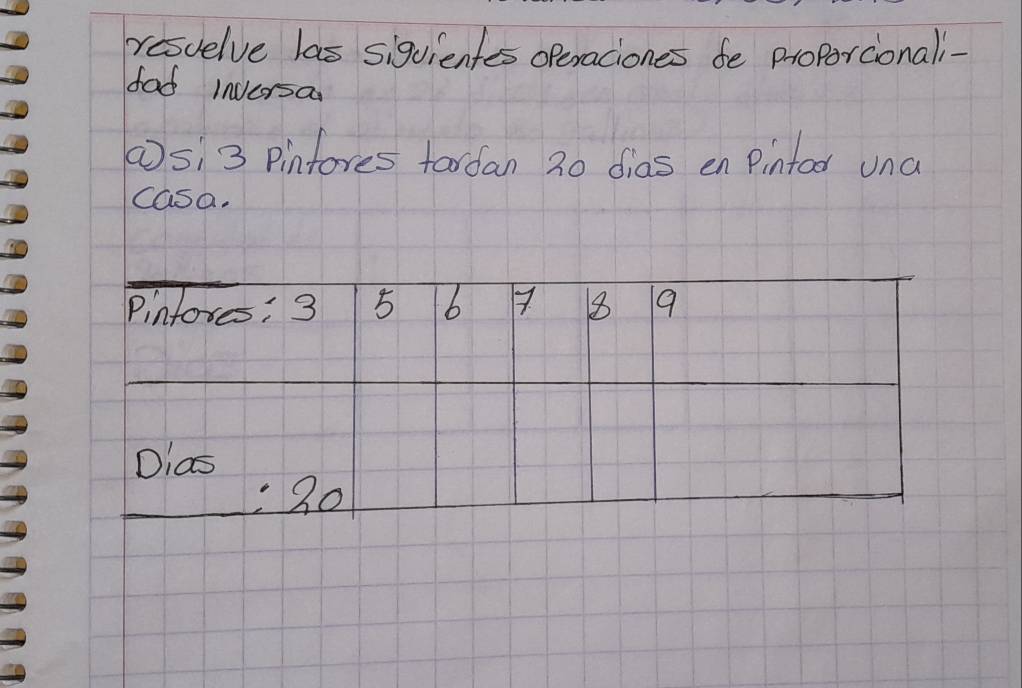 resuelve las siguientes operaciones de proporcionali-
dad inversa
a) si 3 Pintores tardan 20 dias en Pintar una
casa.
Pintores: 3 5 6 7 8 9
Dias
: 20